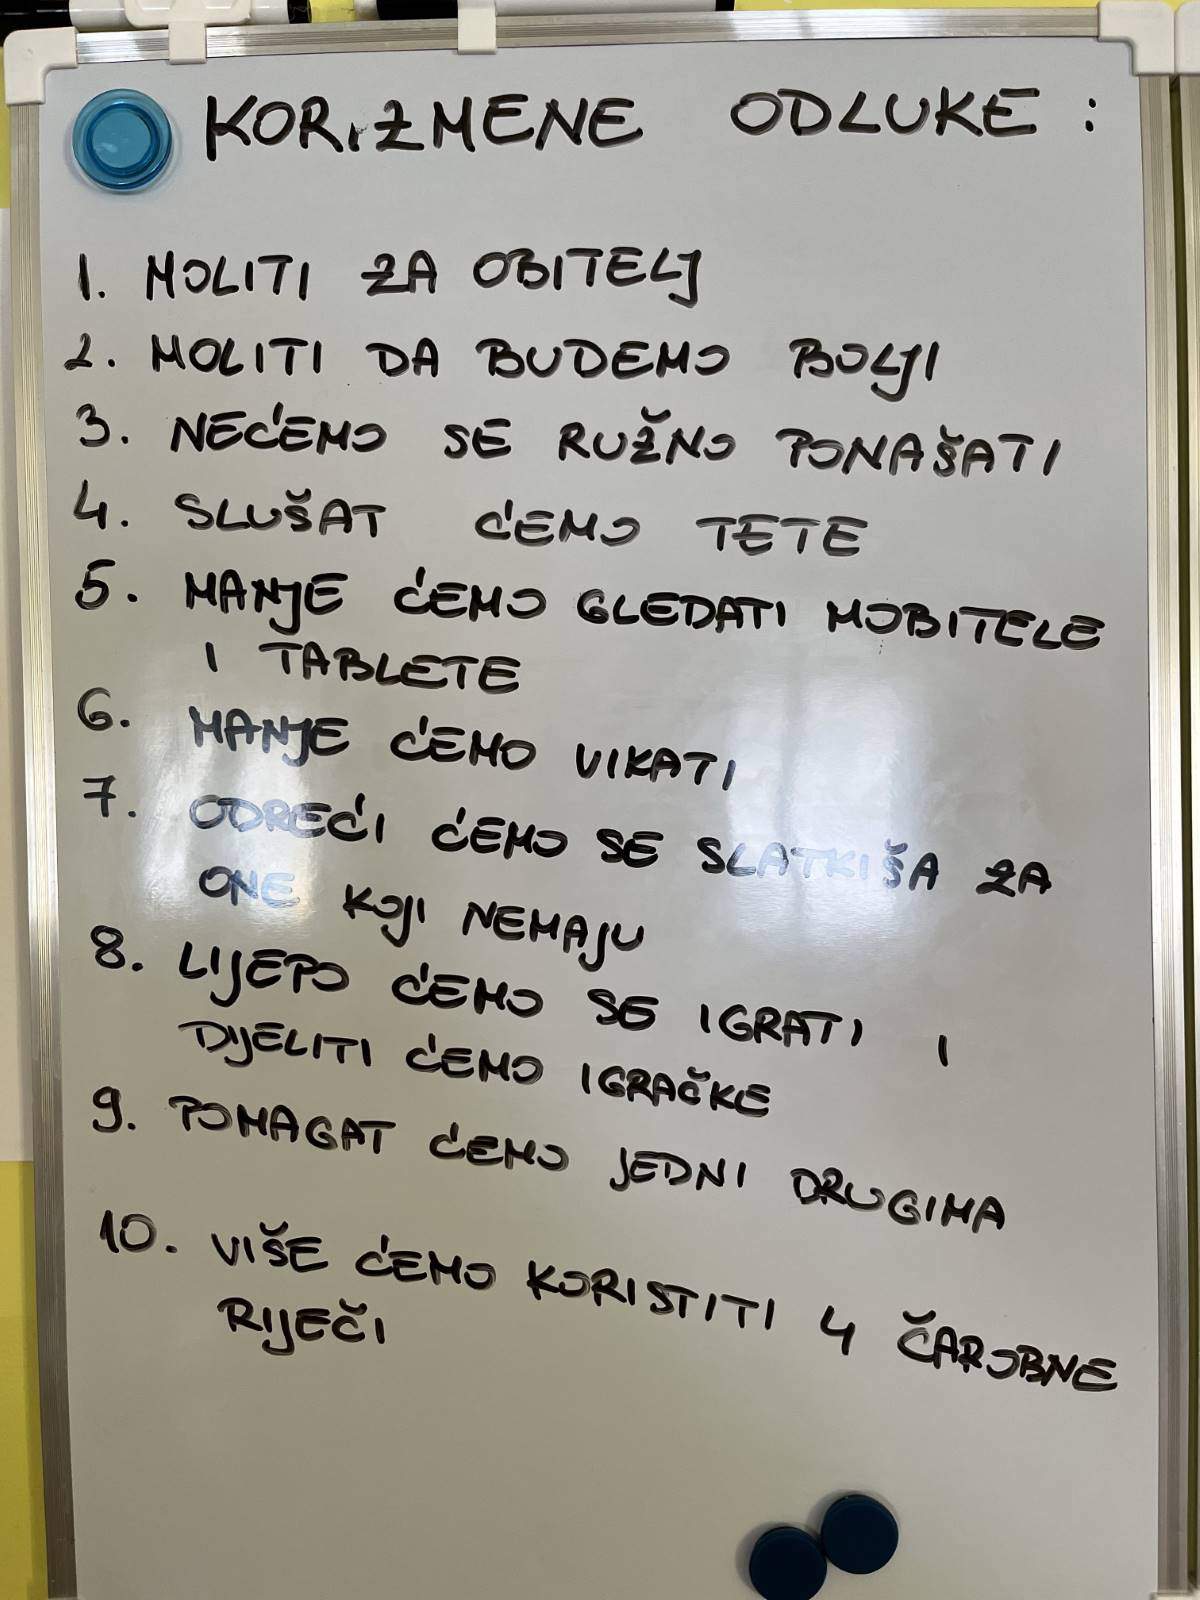 KORIZMENE ODLUKE:
1. MOLITI ZA OBITELJ
2. MOLITI DA BUDEMO BOLJI
3. NEĆEMO SE RUŽNO PONAŠATI
4. SLUŠAT ĆEMO TETE
5. MANJE ĆEMO GLEDATI MOBITELE
I TABLETE
6. MANJE ĆEMO VIKATI
7. ODREĆI ĆEMO SE SLATKIŠA ZA
ONE KOJI NEMAJU
8. LIJEPO ĆEMO SE IGRATI I
DIJELITI ĆEMO IGRAČKE
9. POMAGAT ĆEMO JEDNI DRUGIMA
10. VIŠE ĆEMO KORISTITI 4 ČAROBNE
RIJEČI